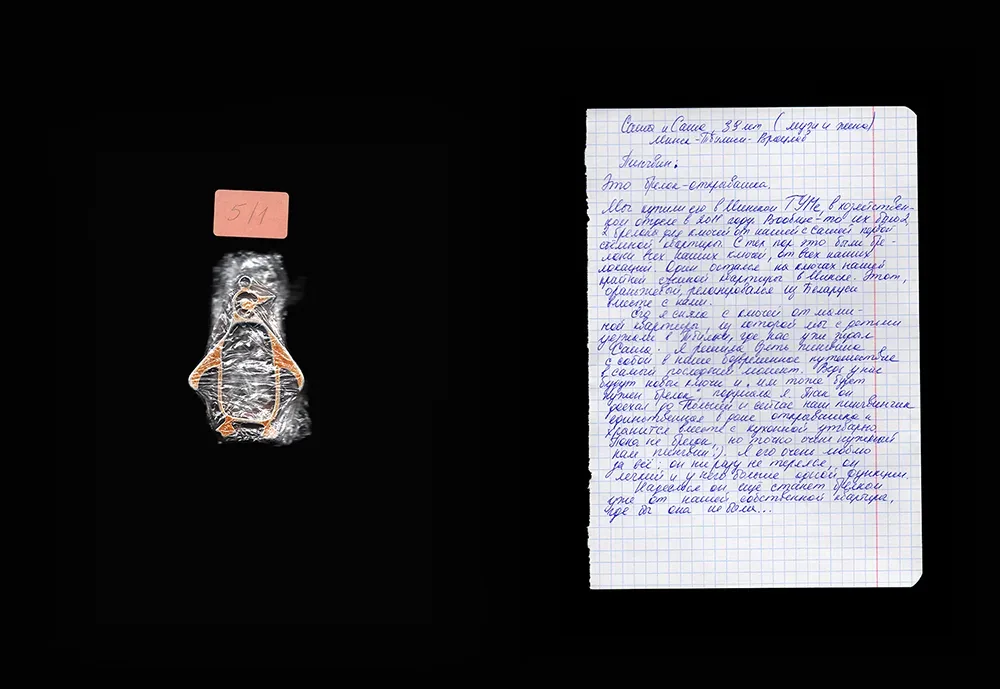 5/1
Саша и Саша, 39 лет (муж и жена)
Минск - Тбилиси - Вроцлав
Пингвин.
Это брелок-открывашка.
Мы купили его в Минском ГУМе, в хозяйствен-
ном отделе в 2011 году. Вообще-то их было 2,
2 брелока для ключей от нашей с Сашей первой
съёмной квартиры. С тех пор это были бре-
локи всех наших ключей, от всех наших
локаций. Один остался на ключах нашей
крайней съемной квартиры в Минске. Этот,
оранжевый, релоцировался из Беларуси
вместе с нами.
Его я сняла с ключей от мами-
ной квартиры, из которой мы с детьми
уезжали в Тбилиси, где нас уже ждал
Саша. Я решила взять пингвина
с собой в наше современное путешествие
в самый последний момент. "Ведь у нас
будут новые ключи и им тоже будет
нужен брелок", подумала я. Так он
доехал до Польши и сейчас наш пингвинчик
единственная в доме открывашка и
хранится вместе с кухонной утварью.
Пока не брелок, но точно очень нужный
нам пингвин :). Я его очень люблю
за всё: он ни разу не терялся, он
лёгкий и у него больше одной функции.
Надеемся он ещё станет брелком
уже от нашей собственной квартиры,
где бы она не была...